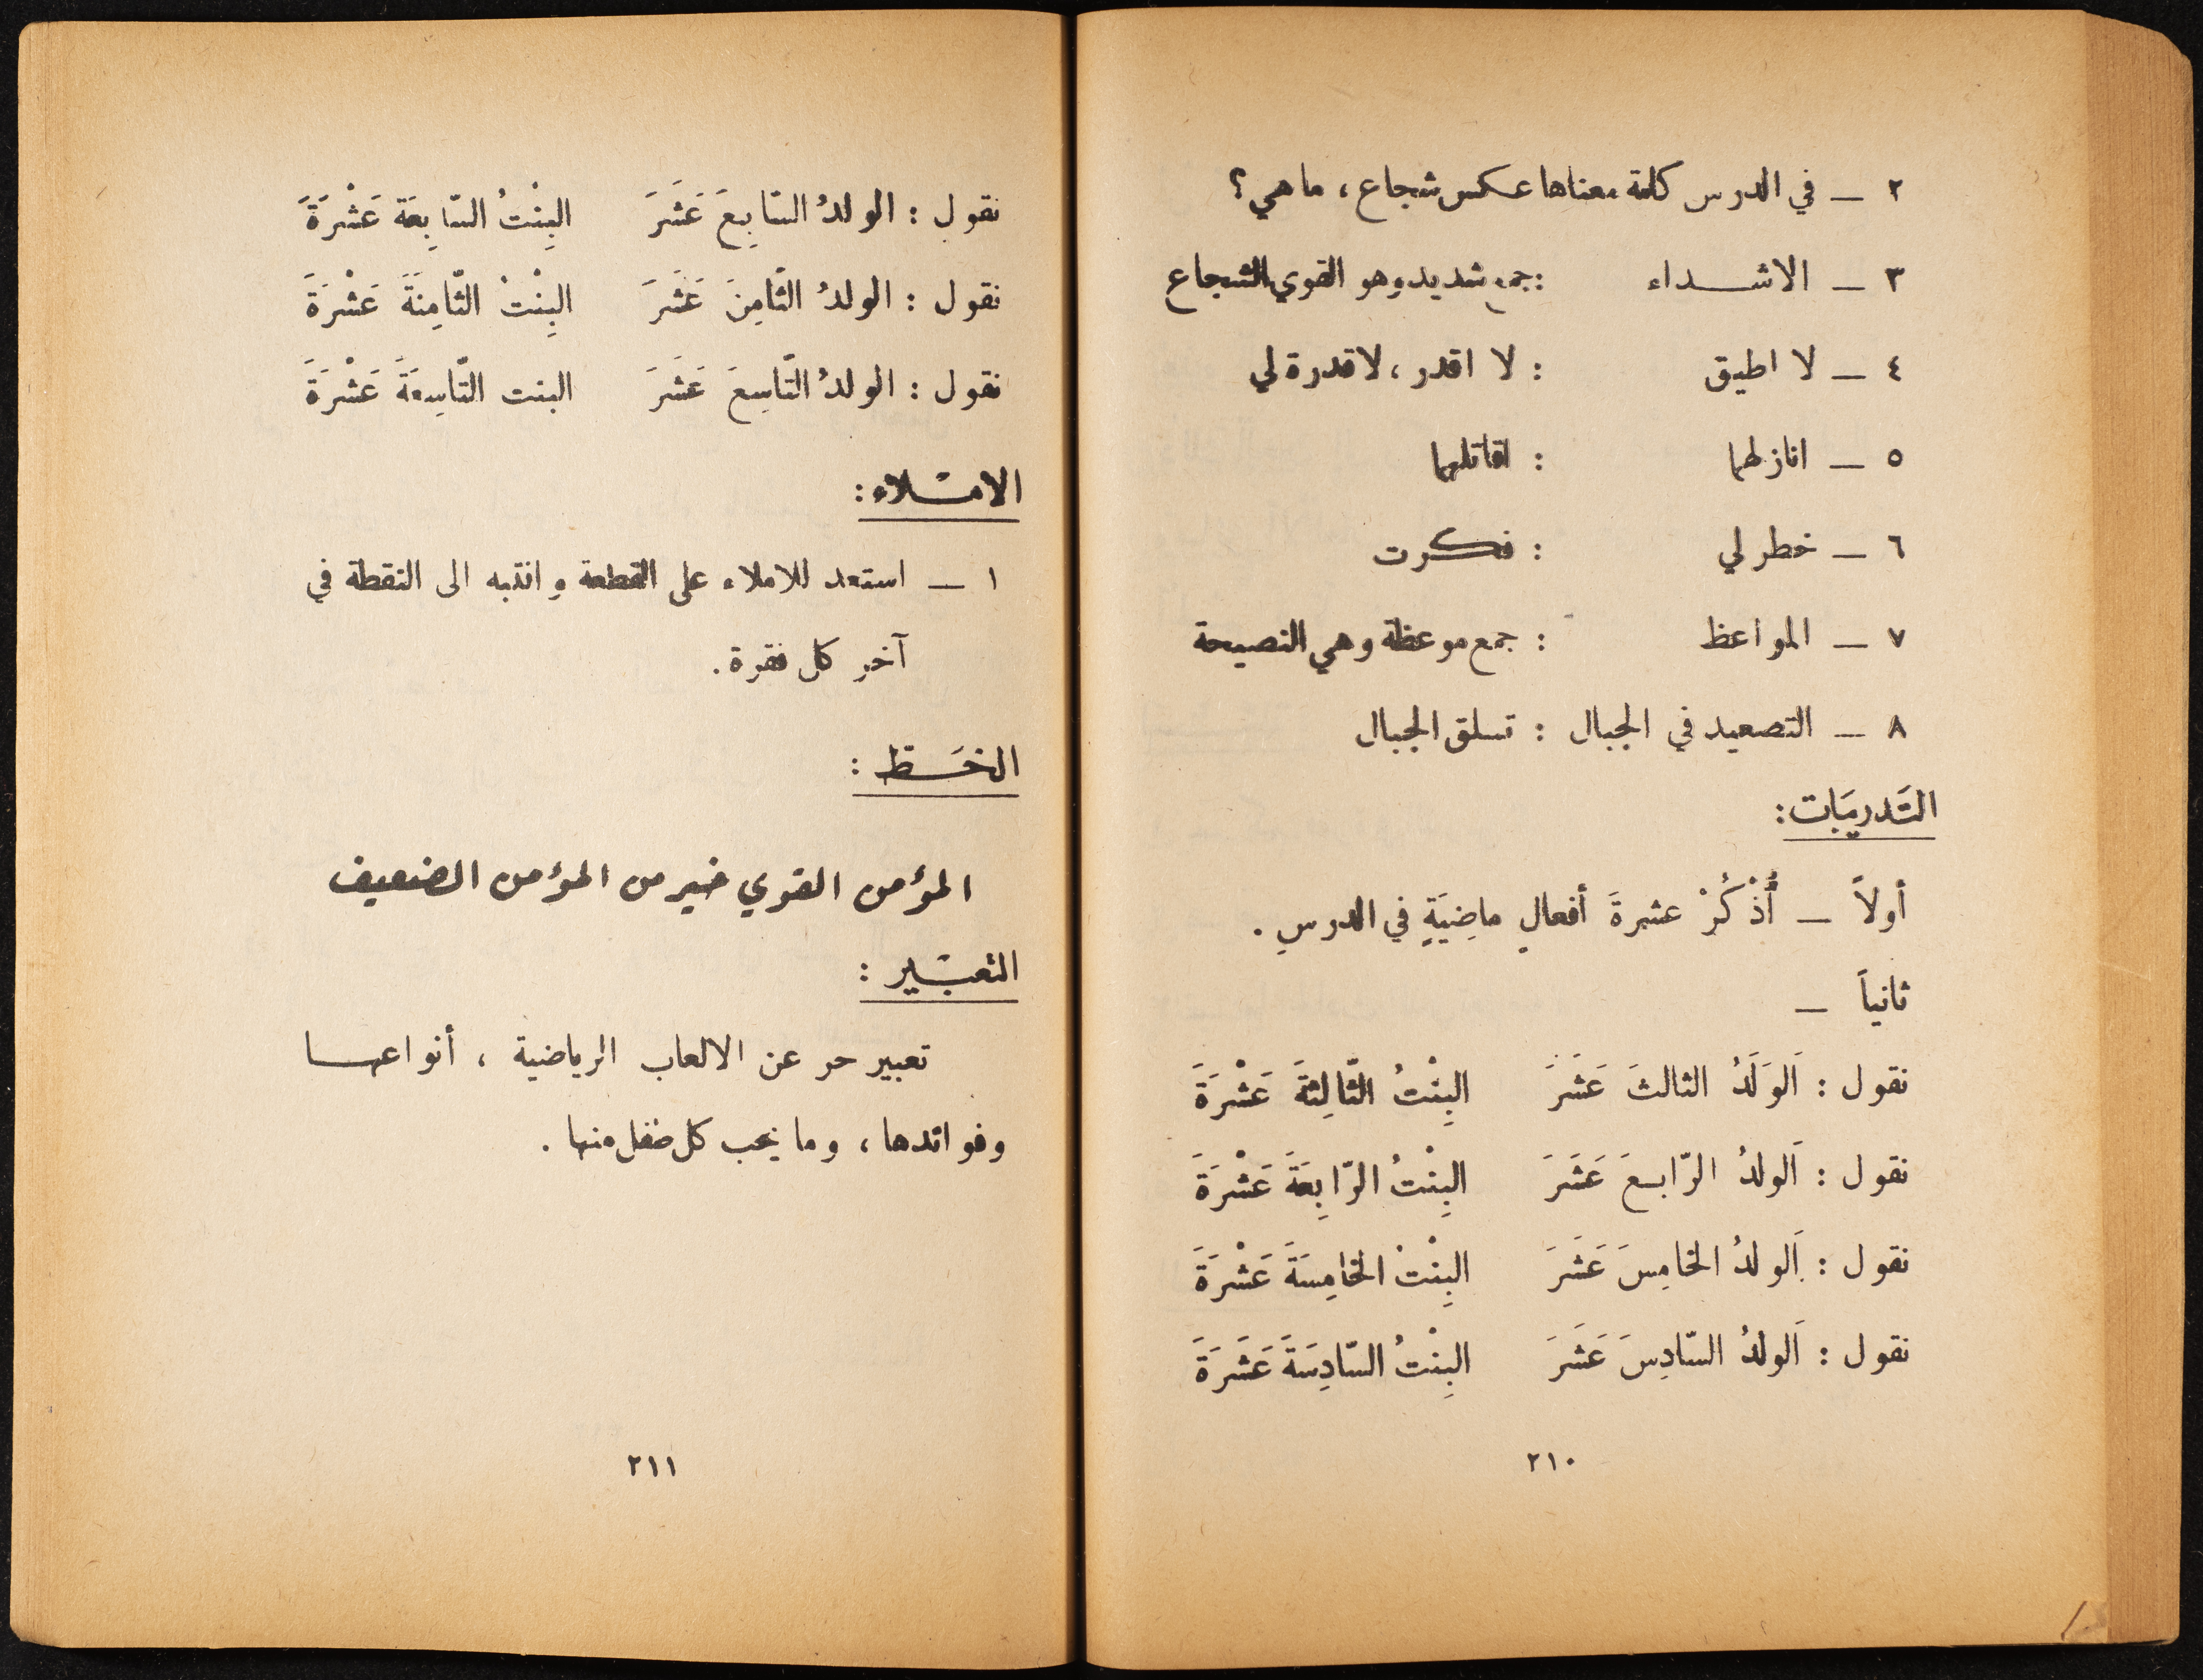 ٢ — في الدرس كلمة معناها عكس شجاع، ما هي؟
٣ — الاشداء : جمع شديد وهو القوي الشجاع
٤ — لا اطيق : لا اقدر، لا قدرة لي
٥ — انازلهما : اقاتلهما
٦ — خطر لي : فكرت
٧ — المواعظ : جمع موعظة وهي النصيحة
٨ — التصعيد في الجبال : تسلق الجبال
التَدريَبات:
أولاً — أُذْكُرْ عشرةَ أفعالٍ ماضِيَةٍ في الدرسِ.
ثانياً —
نقول : اَلوَلَدُ الثالثَ عَشَرَ البِنْتُ الثّالِثَةَ عَشْرَةَ
نقول : اَلولدُ الرّابعَ عَشَرَ البِنْتُ الرّابِعَةَ عَشْرَةَ
نقول : اَلولدُ الخامِسَ عَشَرَ البِنْتُ الخامِسَةَ عَشْرَةَ
نقول : اَلولدُ السّادِسَ عَشَرَ البِنْتُ السّادِسَةَ عَشَرَةَ
٢١٠
نقول : الولدُ السّابِعَ عَشَرَ البِنْتُ السّابِعَةَ عَشْرَةَ
نقول : الولدُ الثّامِنَ عَشَرَ البِنْتُ الثّامِنَةَ عَشْرَةَ
نقول : الولدُ التّاسِعَ عَشَرَ البنت التّاسِعَةَ عَشْرَةَ
الامْلاء:
١ — استعد للاملاء على القطعة وانتبه الى النقطة في
آخر كل فقرة.
الخَط :
المؤمن القوي خير من المؤمن الضعيف
التعبْير :
تعبير حر عن الالعاب الرياضية ، أنواعها
وفوائدها، وما يحب كل طفل منها.
٢١١